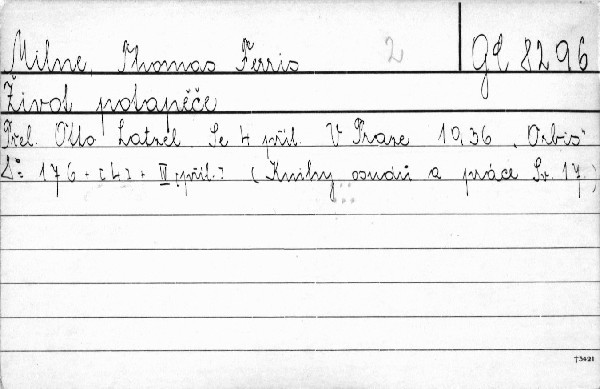 Milne, Thomas Ferris 2 Gd 8296
Život potapěče
Přel. Otto Latzel. Se 4 příl. V Praze 1936 "Orbis"
8° 176 - [4] + II příl.] (Knihy osudů a práce Sv. 17.)
†3421